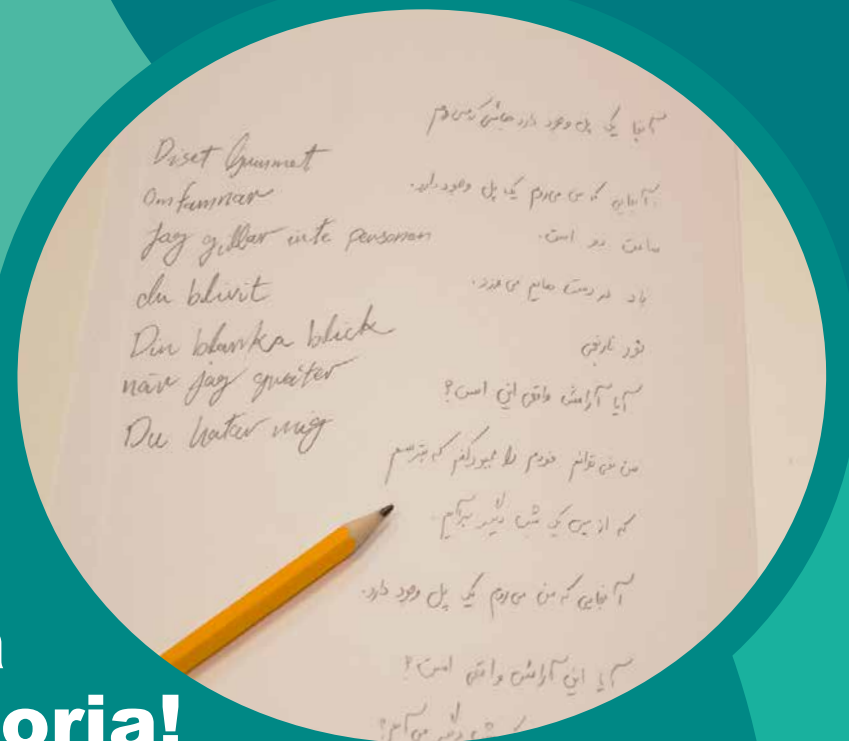 Diset
omfamnar
Jag gillar inte personen
du blivit
Din blanka blick
när jag gråter
Du hatar mig
آنجا یک پل وجود دارد
آنجایی که من می‌روم یک پل وجود دارد.
ساعت دو است.
باد در دست‌هایم می‌وزد.
نور نارنجی
آیا آرامش واقعی این است؟
خودم را مجبور کنم که بترسم
که از پس یک شب دیگر برآیم.
آنجایی که من می‌روم یک پل وجود دارد.
آیا این آرامش واقعی است؟
oria!